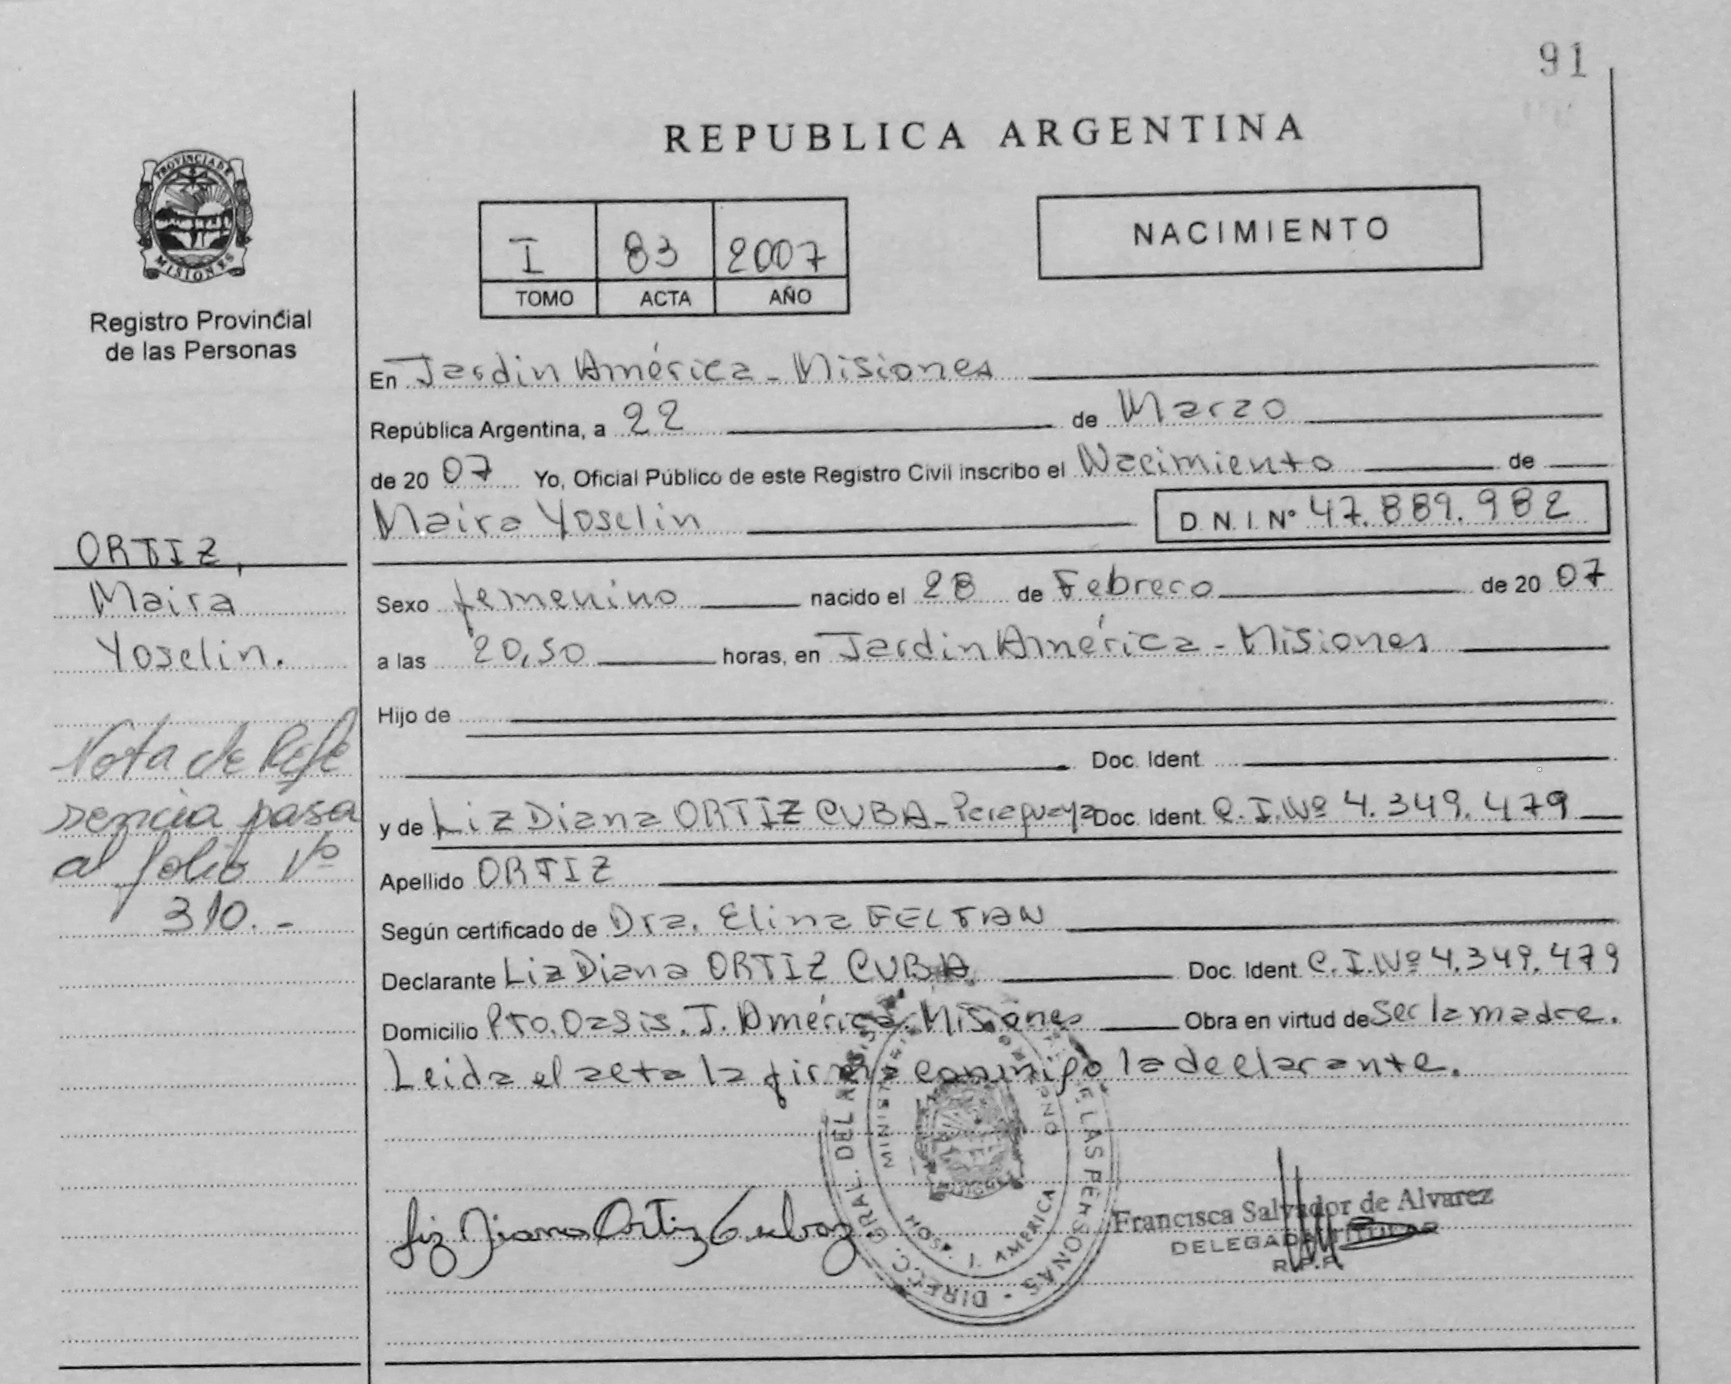 91
REPUBLICA ARGENTINA
PROVINCIA DE
MISIONES
Registro Provincial
de las Personas
I 83 2007
TOMO ACTA AÑO
NACIMIENTO
En Jardin América - Misiones
República Argentina, a 22 de Marzo
de 20 07 Yo, Oficial Público de este Registro Civil inscribo el Nacimiento de
Maira Yoselin D.N.I. Nº 47.889.982
ORTIZ,
Maira
Yoselin.
Sexo femenino nacido el 28 de Febrero de 20 07
a las 20,50 horas, en Jardin América - Misiones
Hijo de
Doc. Ident.
Nota de Refe
rencia pasa
al folio Nº
310.-
y de Liz Diana ORTIZ CUBA - Paraguaya Doc. Ident. C.I.Nº 4.349.479
Apellido ORTIZ
Según certificado de Dra. Elina FELTAN
Declarante Liz Diana ORTIZ CUBA Doc. Ident. C.I.Nº 4.349.479
Domicilio Pto. Oasis. J. América. Misiones Obra en virtud de Ser la madre.
Leida el acta la firma conmigo la declarante.
Liz Diana Ortiz
DIRECC. GRAL. DEL REGIS DE LAS PERSONAS
HOSP. J. AMERICA
MISIONES
Francisca Salvador de Alvarez
DELEGADA TITULAR
R.P.P.